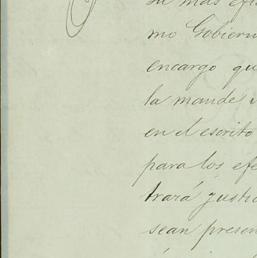 su mas efi
mo Gobiern
encargo qu
la mande
en el escrito
para los efe
trará justi
sean presen